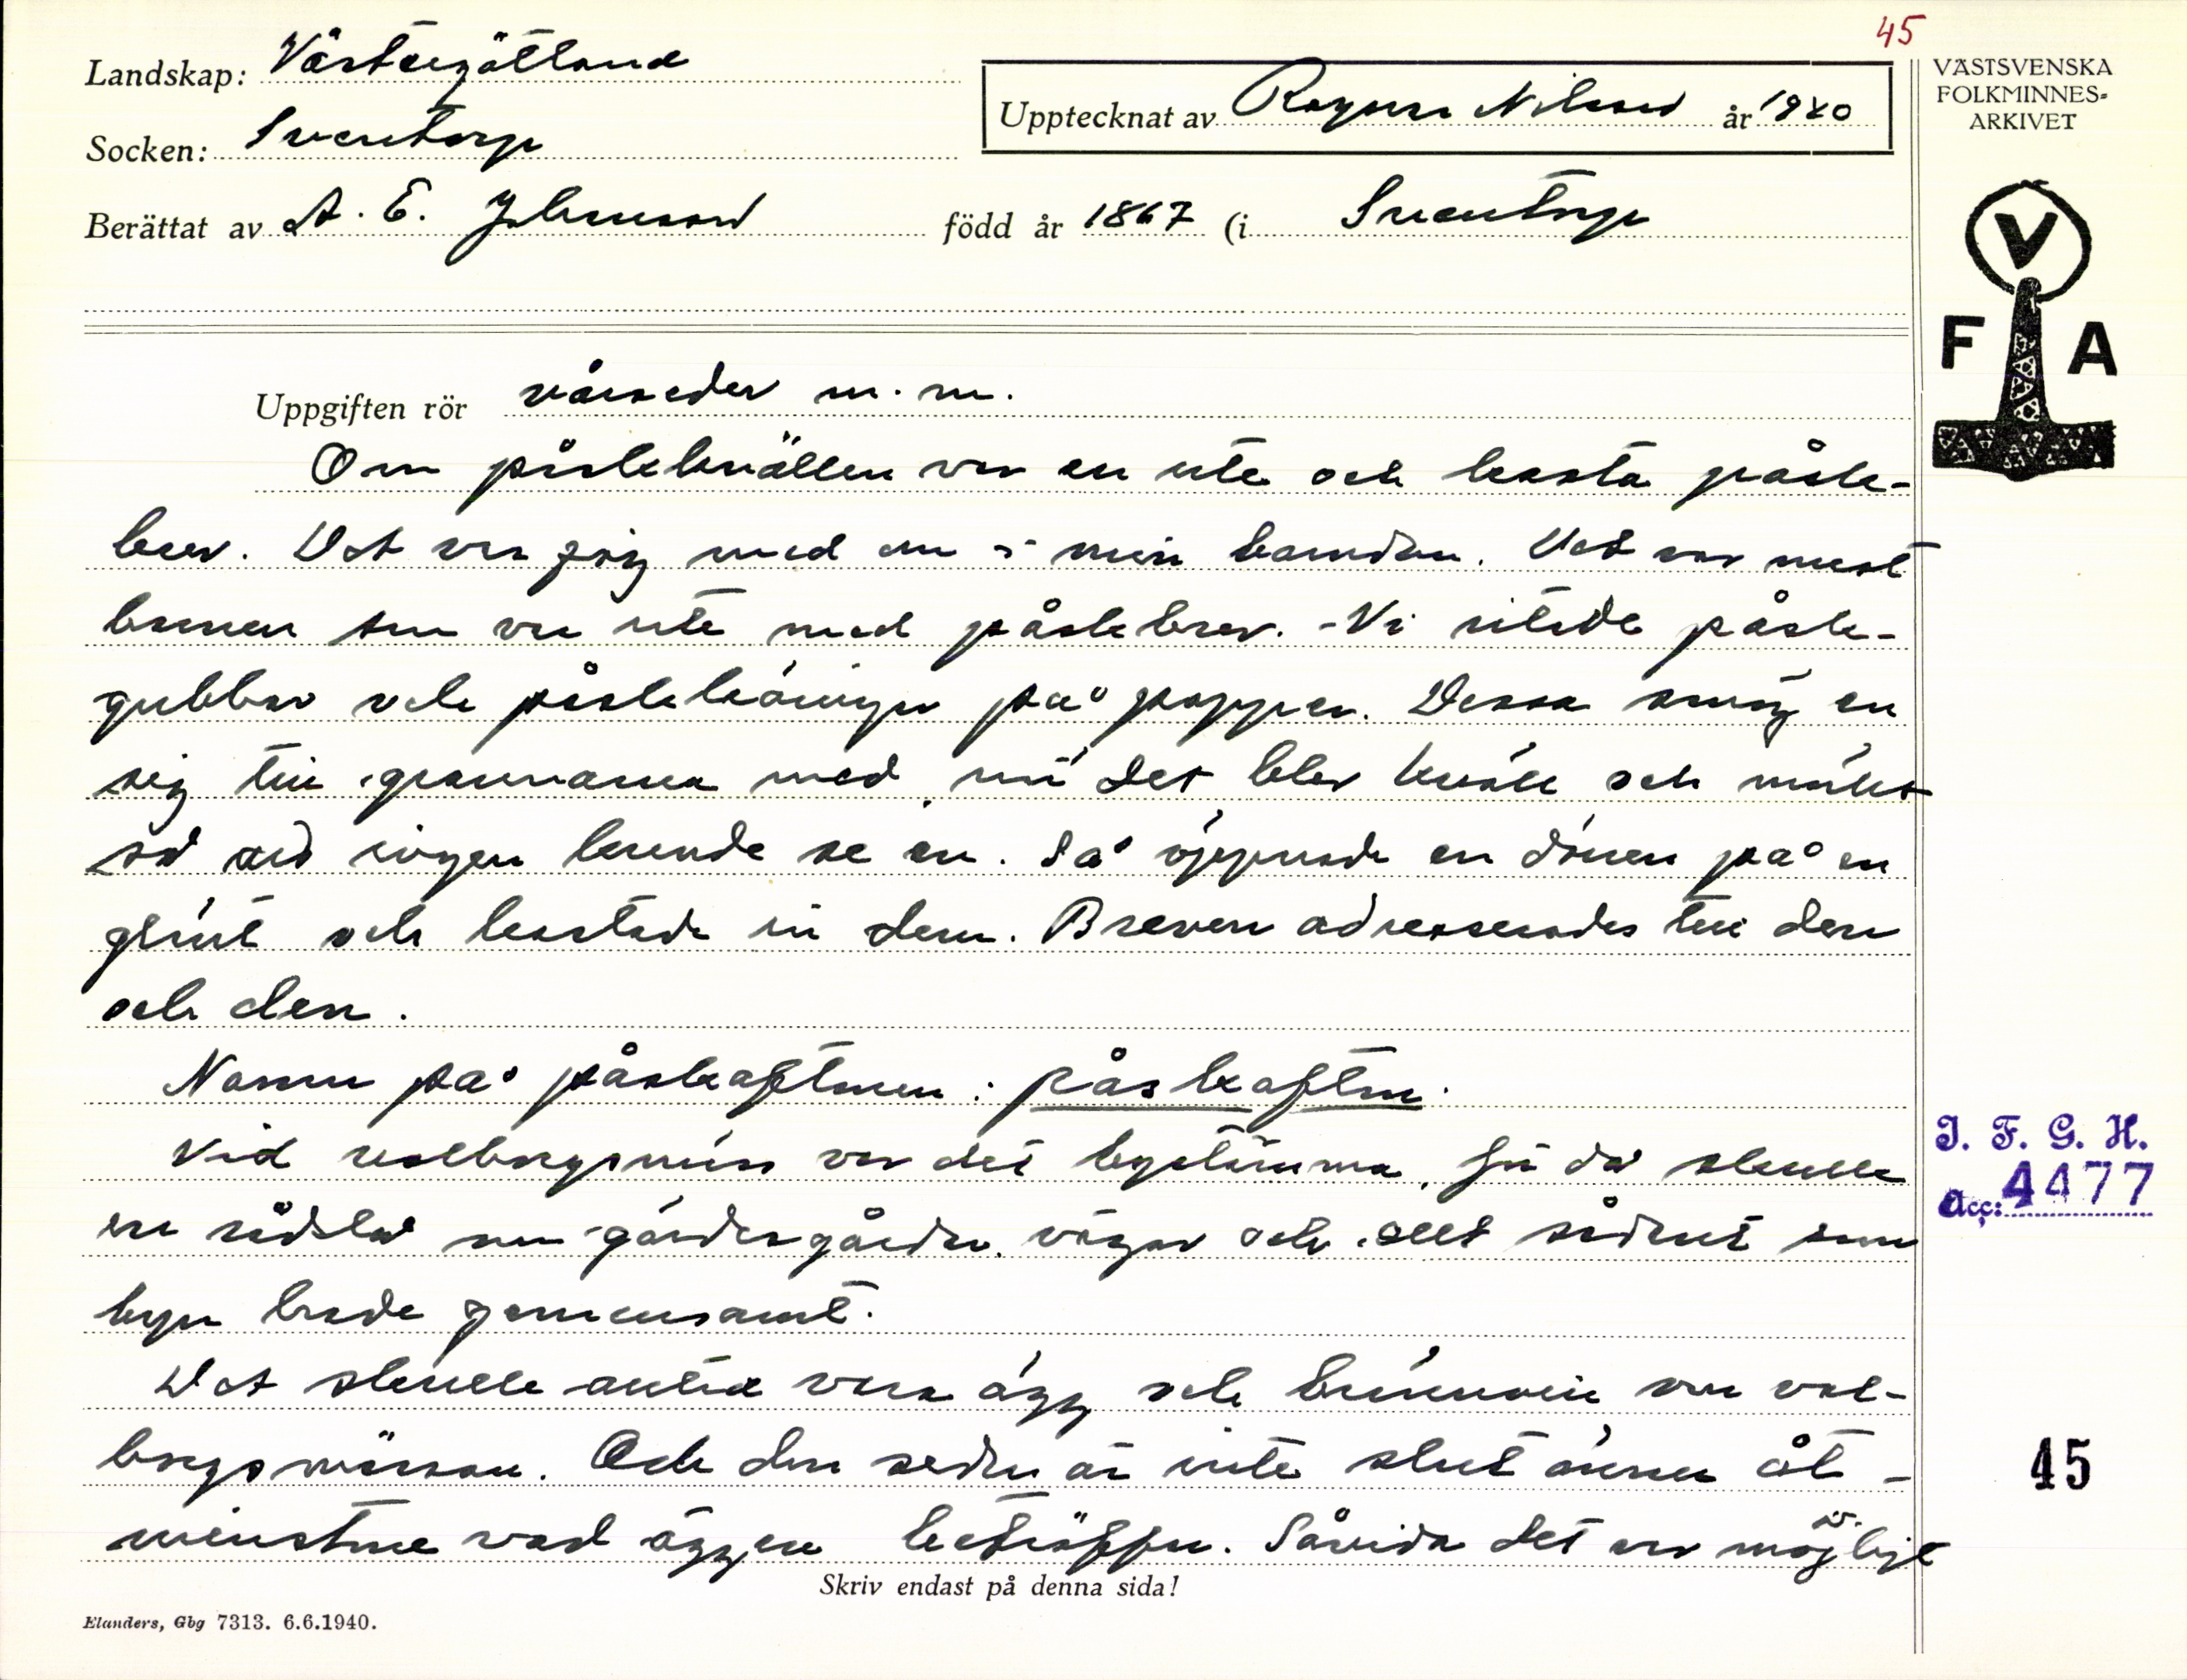 45
Landskap: Västergötland
Socken: Sventorp
Berättat av A. E. Johansson född år 1867 (i Sventorp
Upptecknat av Ragnar Nilsson år 1940
VÄSTSVENSKA
FOLKMINNES-
ARKIVET
V
F A
Uppgiften rör årsseder m. m.
Om påskkvällen var en ute och kasta påsk-
brev. Det var jag med om i min barndom. Det var mest
barnen som var ute med påskbrev. - Vi ritade påsk-
gubbar och påskkäringar på papper. Dessa smög en
sig till grannarna med, när det blev kväll och mörkt
så att ingen kunde se en. Så öppnade en dörren på en
glänt och kastade in dem. Breven adresserades till den
och den.
Namn på påskaftonen: påskaftn.
Vid valborgsmäss var det bystämma, för då skulle
en rådslå om gärdesgårdar, vägar och allt sådant som
byn hade gemensamt.
Det skulle alltid vara ägg och brännvin om val-
borgsmässan. Och den seden är inte slut ännu åt-
minstone vad äggen beträffar. Såvida det var möjligt
I. F. G. H.
Acc: 4477
45
Skriv endast på denna sida!
Elanders, Gbg 7313. 6.6.1940.